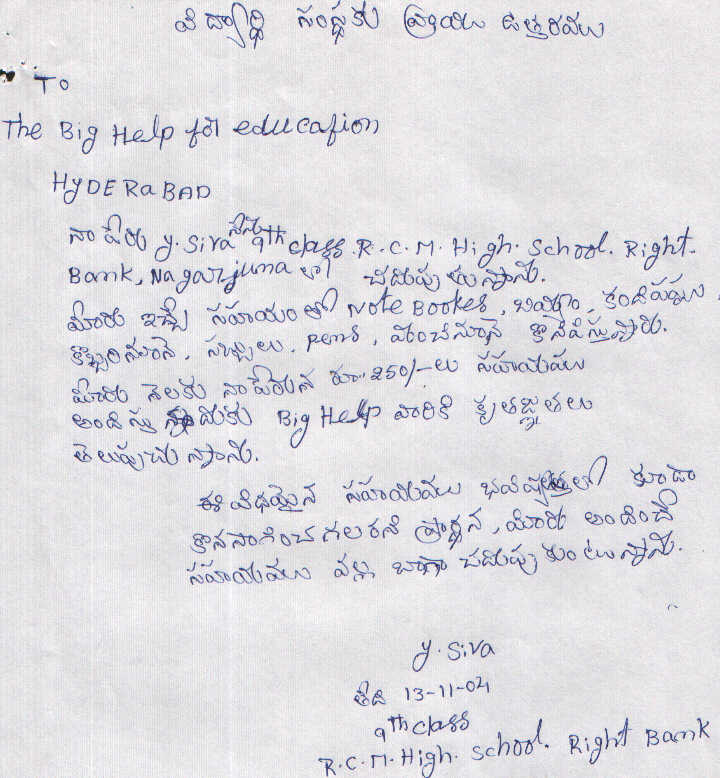 విద్యార్థి సంస్థకు వ్రాయు ఉత్తరములు
To
The Big Help for education
HYDERABAD
నా పేరు Y. Siva నేను 9th class R.C.M. High. School. Right.
Bank, Nagarjuna లో చదువుతున్నాను.
మీరు ఇచ్చే సహాయంతో Note Bookes, బియ్యం, కందిపప్పు,
కొబ్బరినూనె, సబ్బులు, pens, మంచినూనె కొనిపిస్తున్నారు.
మీరు నెలకు నా పేరున రూ. 250/-లు సహాయము
అందిస్తున్నందుకు Big Help వారికి కృతజ్ఞతలు
తెలుపుచున్నాను.
ఈ విధమైన సహాయము భవిష్యత్తులో కూడా
కొనసాగించగలరని ప్రార్థన, మీరు అందించే
సహాయము వల్ల బాగా చదువుకుంటున్నాను.
Y. Siva
తేది 13-11-04
9th class
R.C.M. High. School. Right Bank